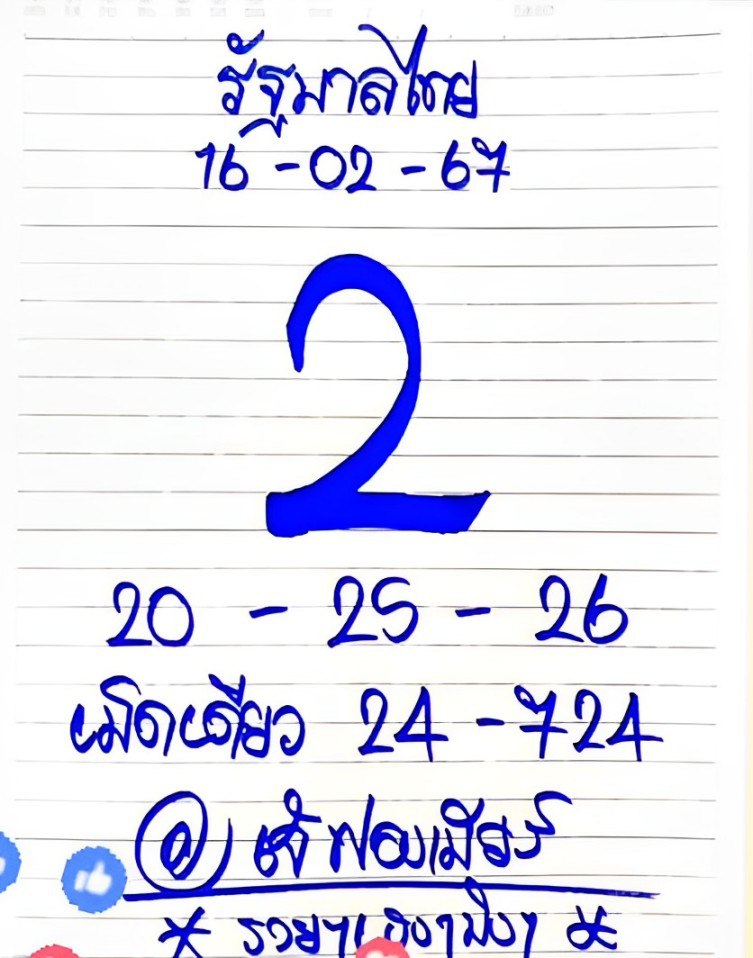 รัฐบาลไทย
16-02-67
2
20 - 25 - 26
เม็ดเดียว 24-724
เจ๊ฟองเบียร์
* รวยๆ เฮงๆ ปังๆ *